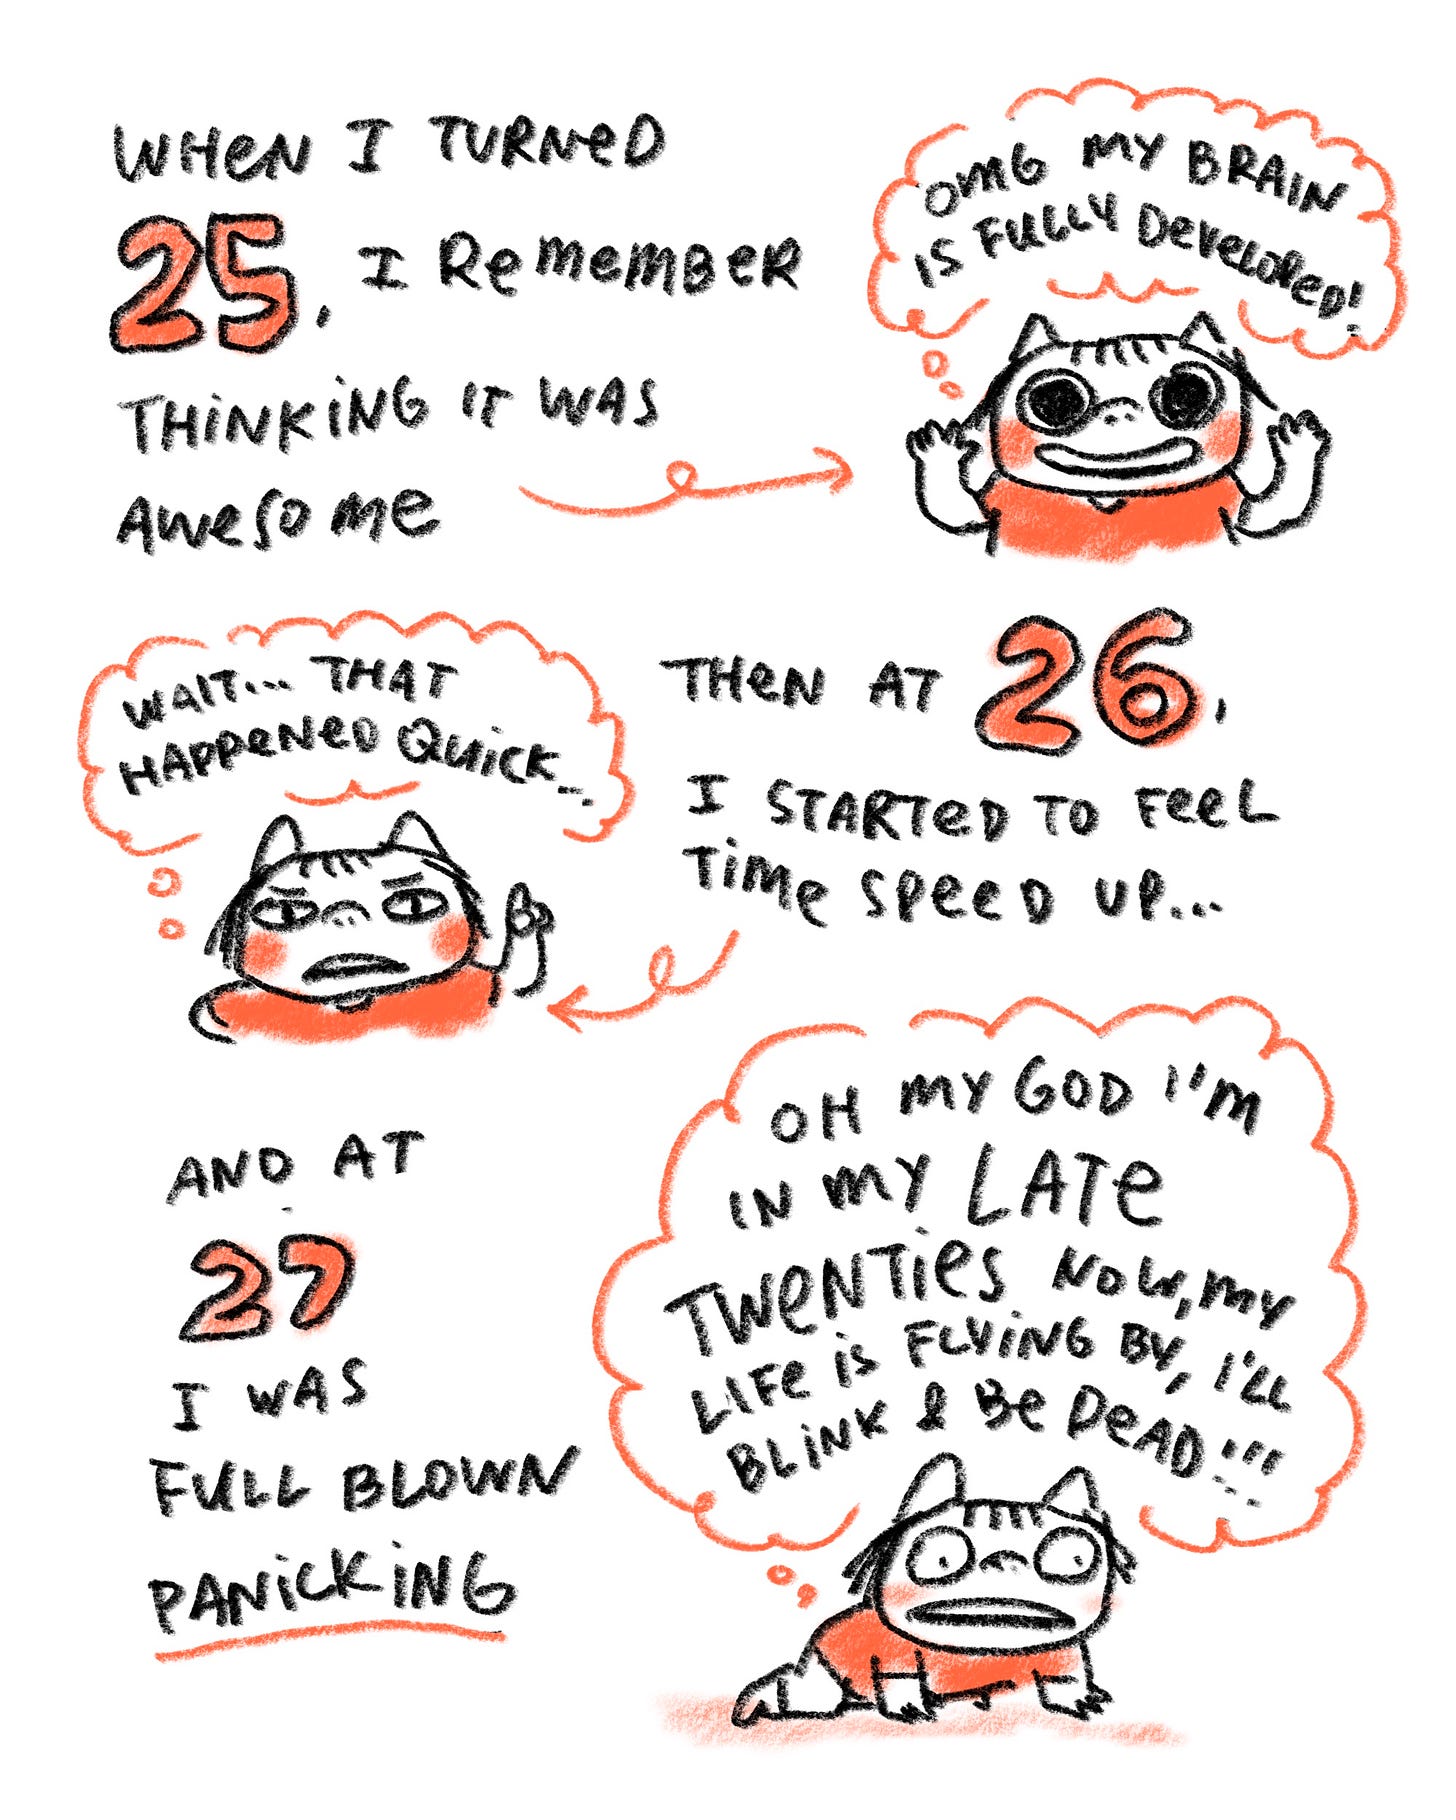 WHEN I TURNED
25, I REMEMBER
THINKING IT WAS
AWESOME
OMG MY BRAIN
IS FULLY DEVELOPED!
THEN AT 26,
I STARTED TO FEEL
TIME SPEED UP...
WAIT... THAT
HAPPENED QUICK...
AND AT
27
I WAS
FULL BLOWN
PANICKING
OH MY GOD I'M
IN MY LATE
TWENTIES NOW, MY
LIFE IS FLYING BY, I'LL
BLINK & BE DEAD!!!